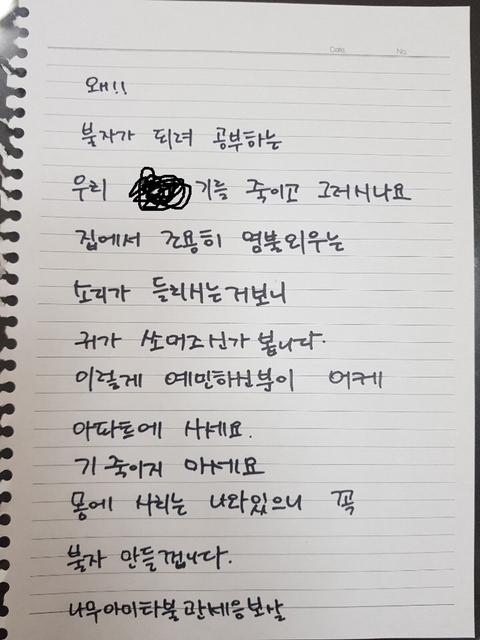 Date. No.
왜!!
불자가 되려 공부하는
우리 기를 죽이고 그러시나요
집에서 조용히 염불외우는
소리가 들리시는거보니
귀가 쏘머즈신가 봅니다.
이렇게 예민하신분이 어케
아파트에 사세요.
기 죽이지 마세요
몸에 사리는 나와있으니 꼭
불자 만들껍니다.
나무아미타불관세음보살